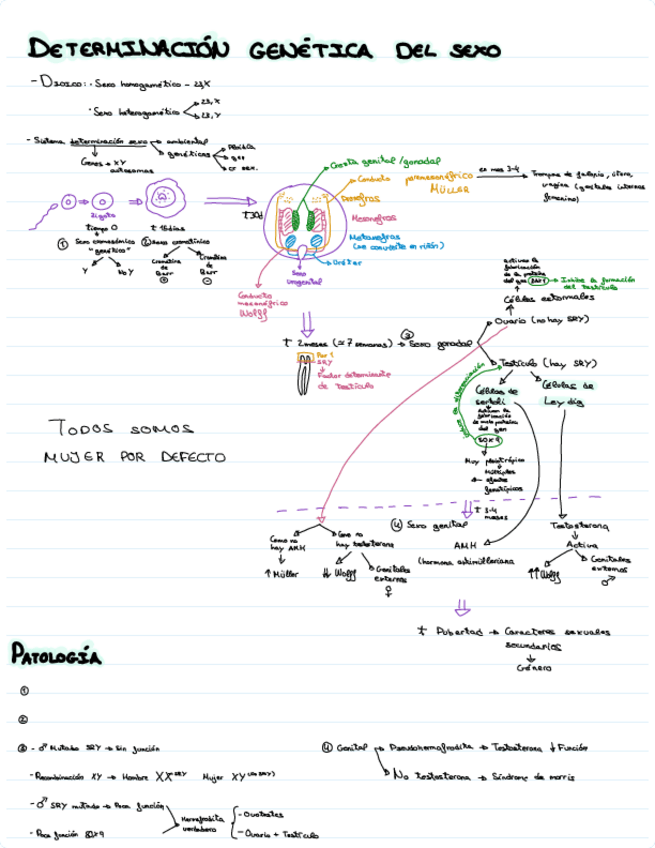 DETERMINACIÓN GENÉTICA DEL SEXO
- Dioico: · Sexo homogamético - 23,X
· Sexo heterogamético
23,X
23,Y
- Sistema determinación sexo → ambiental
genéticos
Genes + XY
autosomas
cr sex.
Zigoto
tiempo 0
t 16 días
① Sexo cromosómico
"genético"
Y
No Y
② Sexo cromatínico
Cromatina de Barr +
Cromatina de Barr -
t 30d
Cresta genital/gonadal
Conducto paramesonéfrico
MÜLLER
en mes 3-4
Trompas de falopio, útero,
vagina (genitales internos
femenino)
Pronefros
Mesonefros
Metanefros
(se convierte en riñón)
Uréter
Seno
urogenital
Conducto
mesonéfrico
Wolff
t 2 meses (≈ 7 semanas) → ③ Sexo gonadal
Par 1
SRY
Factor determinante
de testículo
activan la
fabricación
de la proteína
del gen DAX1 → Inhibe la formación
del testículo
Células estormales
Ovario (no hay SRY)
Testículo (hay SRY)
Células de
sertoli
Células de
Leydig
Activan la
fabricación
de más proteína
del gen
SOX9
Muy pleiotrópico
Múltiples
efectos
fenotípicos
TODOS SOMOS
MUJER POR DEFECTO
t 3-4
meses
④ Sexo genital
Como no
hay AMH
↑ Müller
Como no
hay testosterona
↓↓ Wolff
Genitales
externos
♀
AMH
(hormona antimülleriana)
Testosterona
Activa
↑↑ Wolff
Genitales
externos
♂
t Pubertad → Caracteres sexuales
secundarios
Género
PATOLOGÍA
①
②
③ - ♂ Mutado SRY → Sin función
- Recombinación XY → Hombre XX SRY Mujer XY (no SRY)
- ♂ SRY mutado → Poca función
- Poca función SOX9
Hermafrodita
verdadero
- Ovotestes
- Ovario + Testículo
④ Genital → Pseudohermafrodita → Testosterona ↓ Función
No testosterona → Síndrome de morris